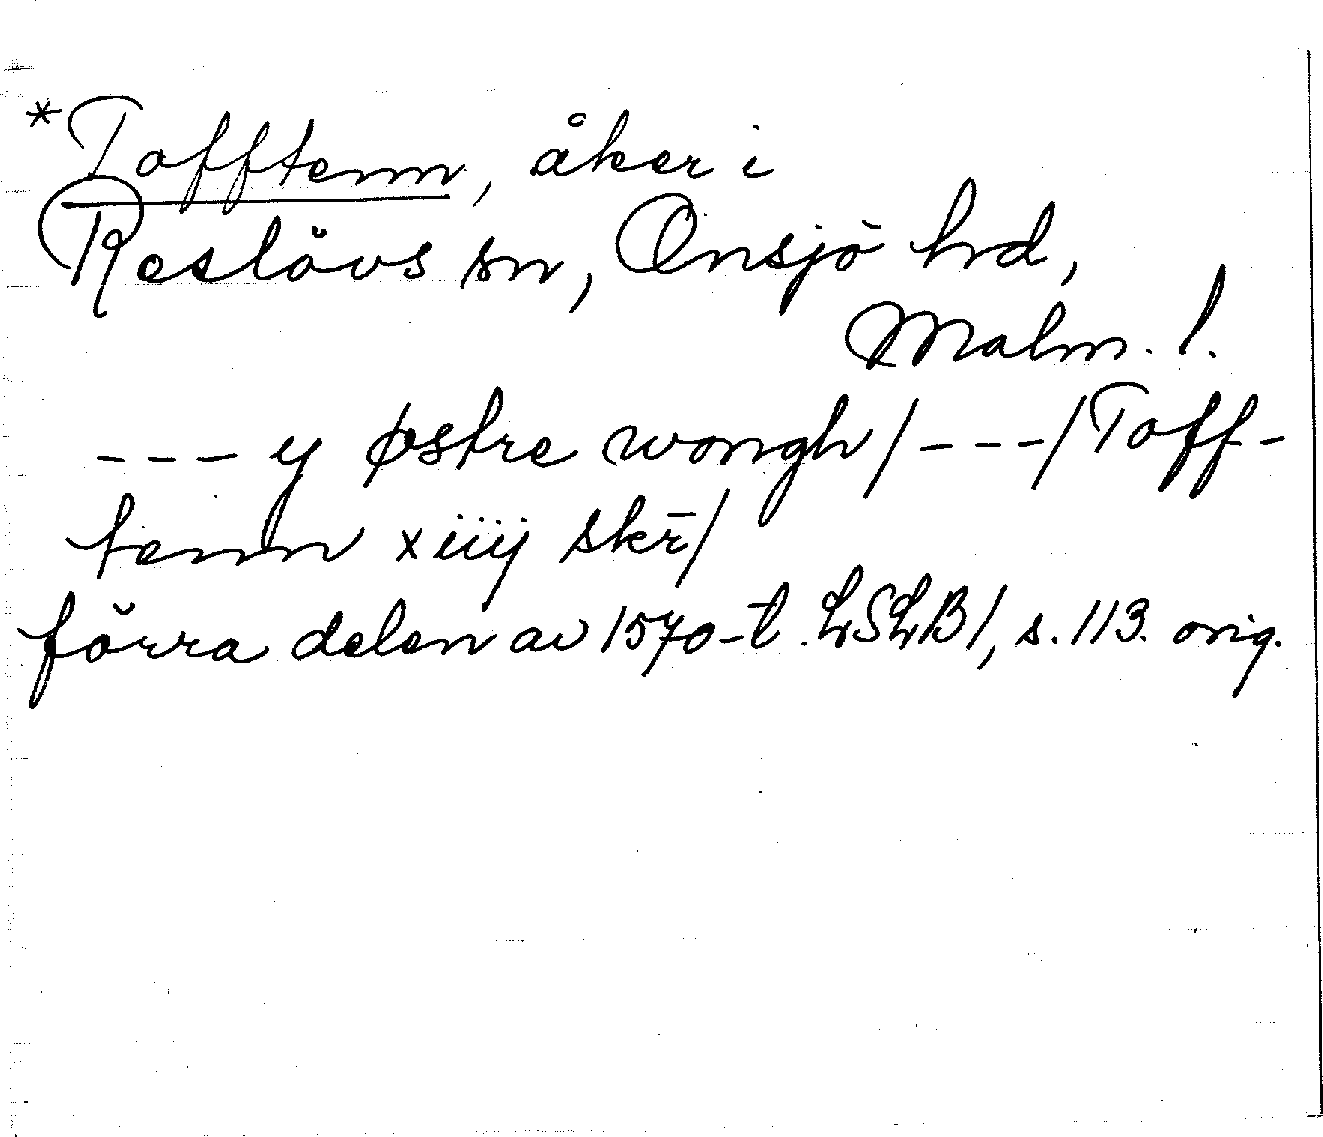 *Tofftenn, åker i
Reslövs sn, Onsjö hrd,
Malm. l.
--- y østre wongh/---/Toff-
tenn xiiij skr̄/
förra delen av 1570-t. LSLB1, s. 113. orig.